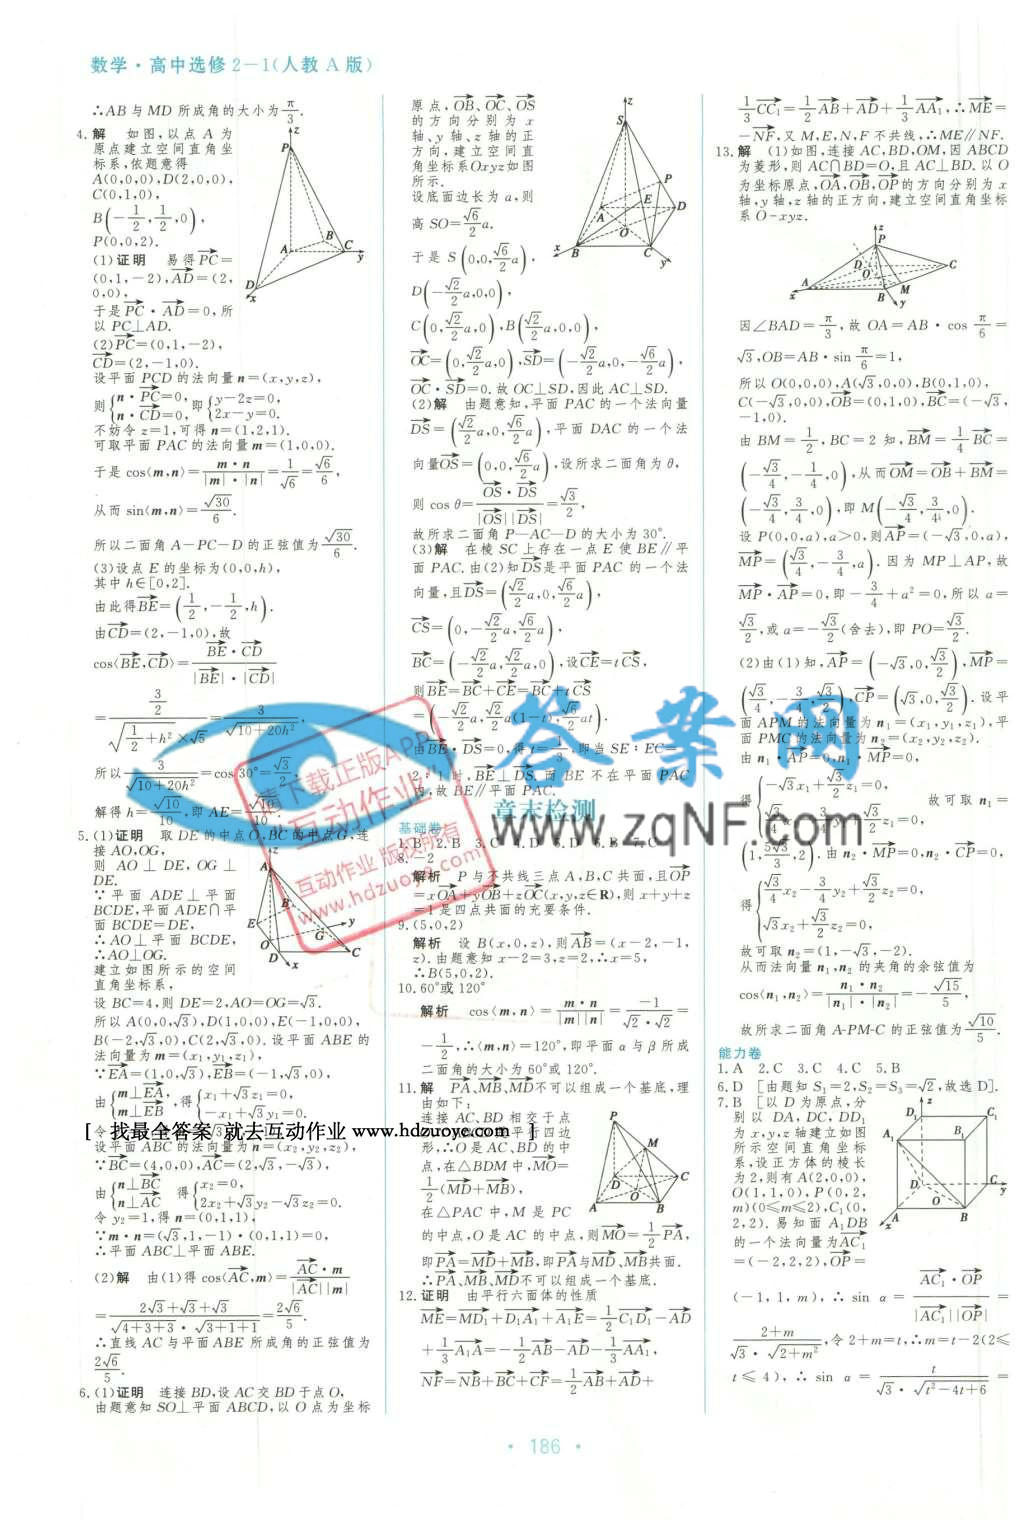 数学·高中选修2-1(人教A版)
∴AB与MD所成角的大小为π/3.
4.解 如图,以点A为
原点建立空间直角坐
标系,依题意得
A(0,0,0),D(2,0,0),
C(0,1,0),
B(-1/2,1/2,0),
P(0,0,2).
(1)证明 易得PC=
(0,1,-2),AD=(2,
0,0),
于是PC·AD=0,所
以PC⊥AD.
(2)PC=(0,1,-2),
CD=(2,-1,0).
设平面PCD的法向量n=(x,y,z),
则{n·PC=0, n·CD=0, 即{y-2z=0, 2x-y=0.
不妨令z=1,可得n=(1,2,1).
可取平面PAC的法向量m=(1,0,0).
于是cos⟨m,n⟩=m·n/|m|·|n|=1/√6=√6/6,
从而sin⟨m,n⟩=√30/6.
所以二面角A-PC-D的正弦值为√30/6.
(3)设点E的坐标为(0,0,h),
其中h∈[0,2].
由此得BE=(1/2,-1/2,h).
由CD=(2,-1,0),故
cos⟨BE,CD⟩=BE·CD/|BE|·|CD|
=(3/2)/(√(1/2+h²)×√5)=3/√(10+20h²),
所以3/√(10+20h²)=cos 30°=√3/2,
解得h=√10/10,即AE=√10/10.
5.(1)证明 取DE的中点O,BC的中点G,连
接AO,OG,
则AO⊥DE,OG⊥
DE.
∵平面ADE⊥平面
BCDE,平面ADE∩平
面BCDE=DE,
∴AO⊥平面BCDE,
∴AO⊥OG.
建立如图所示的空间
直角坐标系,
设BC=4,则DE=2,AO=OG=√3.
所以A(0,0,√3),D(1,0,0),E(-1,0,0)
B(-2,√3,0),C(2,√3,0).设平面ABE的
法向量为m=(x₁,y₁,z₁),
∵EA=(1,0,√3),EB=(-1,√3,0),
由{m⊥EA, m⊥EB, 得{x₁+√3z₁=0, -x₁+√3y₁=0.
[ 找最全答案 就去互动作业 www.hdzuoye.com ]
设平面ABC的法向量为n=(x₂,y₂,z₂),
∵BC=(4,0,0),AC=(2,√3,-√3),
由{n⊥BC n⊥AC 得{x₂=0, 2x₂+√3y₂-√3z₂=0.
令y₂=1,得n=(0,1,1),
∵m·n=(√3,1,-1)·(0,1,1)=0,
∴平面ABC⊥平面ABE.
(2)解 由(1)得cos⟨AC,m⟩=AC·m/|AC||m|
=(2√3+√3+√3)/(√(4+3+3)·√(3+1+1))=2√6/5.
∴直线AC与平面ABE所成角的正弦值为
2√6/5.
6.(1)证明 连接BD,设AC交BD于点O,
由题意知SO⊥平面ABCD,以O点为坐标
原点,OB、OC、OS
的方向分别为x
轴、y轴、z轴的正
方向,建立空间直
角坐标系Oxyz如图
所示.
设底面边长为a,则
高SO=√6/2a.
于是S(0,0,√6/2a),
D(-√2/2a,0,0),
C(0,√2/2a,0),B(√2/2a,0,0),
OC=(0,√2/2a,0),SD=(-√2/2a,0,-√6/2a),
OC·SD=0.故OC⊥SD,因此AC⊥SD.
(2)解 由题意知,平面PAC的一个法向量
DS=(√2/2a,0,√6/2a),平面DAC的一个法
向量OS=(0,0,√6/2a),设所求二面角为θ,
则cos θ=OS·DS/|OS||DS|=√3/2,
故所求二面角P—AC—D的大小为30°.
(3)解 在棱SC上存在一点E使BE∥平
面PAC.由(2)知DS是平面PAC的一个法
向量,且DS=(√2/2a,0,√6/2a),
CS=(0,-√2/2a,√6/2a),
BC=(-√2/2a,√2/2a,0),设CE=tCS,
则BE=BC+CE=BC+tCS
=(-√2/2a,√2/2a(1-t),√6/2at).
由BE·DS=0,得t=1/3,即当SE:EC=
2:1时,BE⊥DS.而BE不在平面PAC
内,故BE∥平面PAC
章末检测
基础卷
1.B 2.B 3.C 4.D 5.D 6.B 7.C
8.-2
解析 P与不共线三点A,B,C共面,且OP
=xOA+yOB+zOC(x,y,z∈R),则x+y+z
=1是四点共面的充要条件.
9.(5,0,2)
解析 设B(x,0,z),则AB=(x-2,-1,
z).由题意知x-2=3,z=2,∴x=5,
∴B(5,0,2).
10.60°或120°
解析 cos⟨m,n⟩=m·n/|m||n|=-1/(√2·√2)=
-1/2,∴⟨m,n⟩=120°,即平面α与β所成
二面角的大小为60°或120°.
11.解 PA、MB、MD不可以组成一个基底,理
由如下:
连接AC、BD相交于点
形,∴O是AC、BD的中
点,在△BDM中,MO=
1/2(MD+MB),
在△PAC中,M是PC
的中点,O是AC的中点,则MO=1/2PA,
即PA=MD+MB,即PA与MD、MB共面.
∴PA、MB、MD不可以组成一个基底.
12.证明 由平行六面体的性质
ME=MD₁+D₁A₁+A₁E=1/2C₁D₁-AD
+1/3A₁A=-1/2AB-AD-1/3AA₁,
NF=NB+BC+CF=1/2AB+AD+
1/3CC₁=1/2AB+AD+1/3AA₁,∴ME=
-NF,又M,E,N,F不共线,∴ME∥NF.
13.解 (1)如图,连接AC,BD,OM,因ABCD
为菱形,则AC∩BD=O,且AC⊥BD.以O
为坐标原点,OA,OB,OP的方向分别为x
轴,y轴,z轴的正方向,建立空间直角坐标
系O-xyz.
因∠BAD=π/3,故OA=AB·cos π/6=
√3,OB=AB·sin π/6=1,
所以O(0,0,0),A(√3,0,0),B(0,1,0),
C(-√3,0,0),OB=(0,1,0),BC=(-√3,
-1,0).
由BM=1/2,BC=2知,BM=1/4BC=
(-√3/4,-1/4,0),从而OM=OB+BM=
(-√3/4,3/4,0),即M(-√3/4,3/4,0).
设P(0,0,a),a>0,则AP=(-√3,0,a),
MP=(√3/4,-3/4,a).因为MP⊥AP,故
MP·AP=0,即-3/4+a²=0,所以a=
√3/2,或a=-√3/2(舍去),即PO=√3/2.
(2)由(1)知,AP=(-√3,0,√3/2),MP=
(√3/4,-3/4,√3/2),CP=(√3,0,√3/2).设平
面APM的法向量为n₁=(x₁,y₁,z₁),平
面PMC的法向量为n₂=(x₂,y₂,z₂).
由n₁·AP=0,n₁·MP=0,
得 故可取n₁=
(1,5√3/3,2).由n₂·MP=0,n₂·CP=0,
得{√3/4x₂-3/4y₂+√3/2z₂=0, √3x₂+√3/2z₂=0,
故可取n₂=(1,-√3,-2).
从而法向量n₁,n₂的夹角的余弦值为
cos⟨n₁,n₂⟩=n₁·n₂/|n₁|·|n₂|=-√15/5,
故所求二面角A-PM-C的正弦值为√10/5.
能力卷
1.A 2.C 3.C 4.C 5.B
6.D [由题知S₁=2,S₂=S₃=√2,故选D].
7.B [以D为原点,分
别以DA,DC,DD₁
为x,y,z轴建立如图
所示空间直角坐标
系,设正方体的棱长
为2,则有A(2,0,0),
O(1,1,0),P(0,2,
m)(0≤m≤2),C₁(0,
2,2).易知面A₁DB
的一个法向量为AC₁
=(-2,2,2),OP=
(-1,1,m),∴sin α=AC₁·OP/|AC₁||OP|=
(2+m)/(√3·√(2+m²)),令2+m=t,∴m=t-2(2≤
t≤4),∴sin α=t/(√3·√(t²-4t+6))=
·186·
答案网
www.zqNF.com
请下载正版APP
互动作业
互动作业 版权所有
www.hdzuoye.com